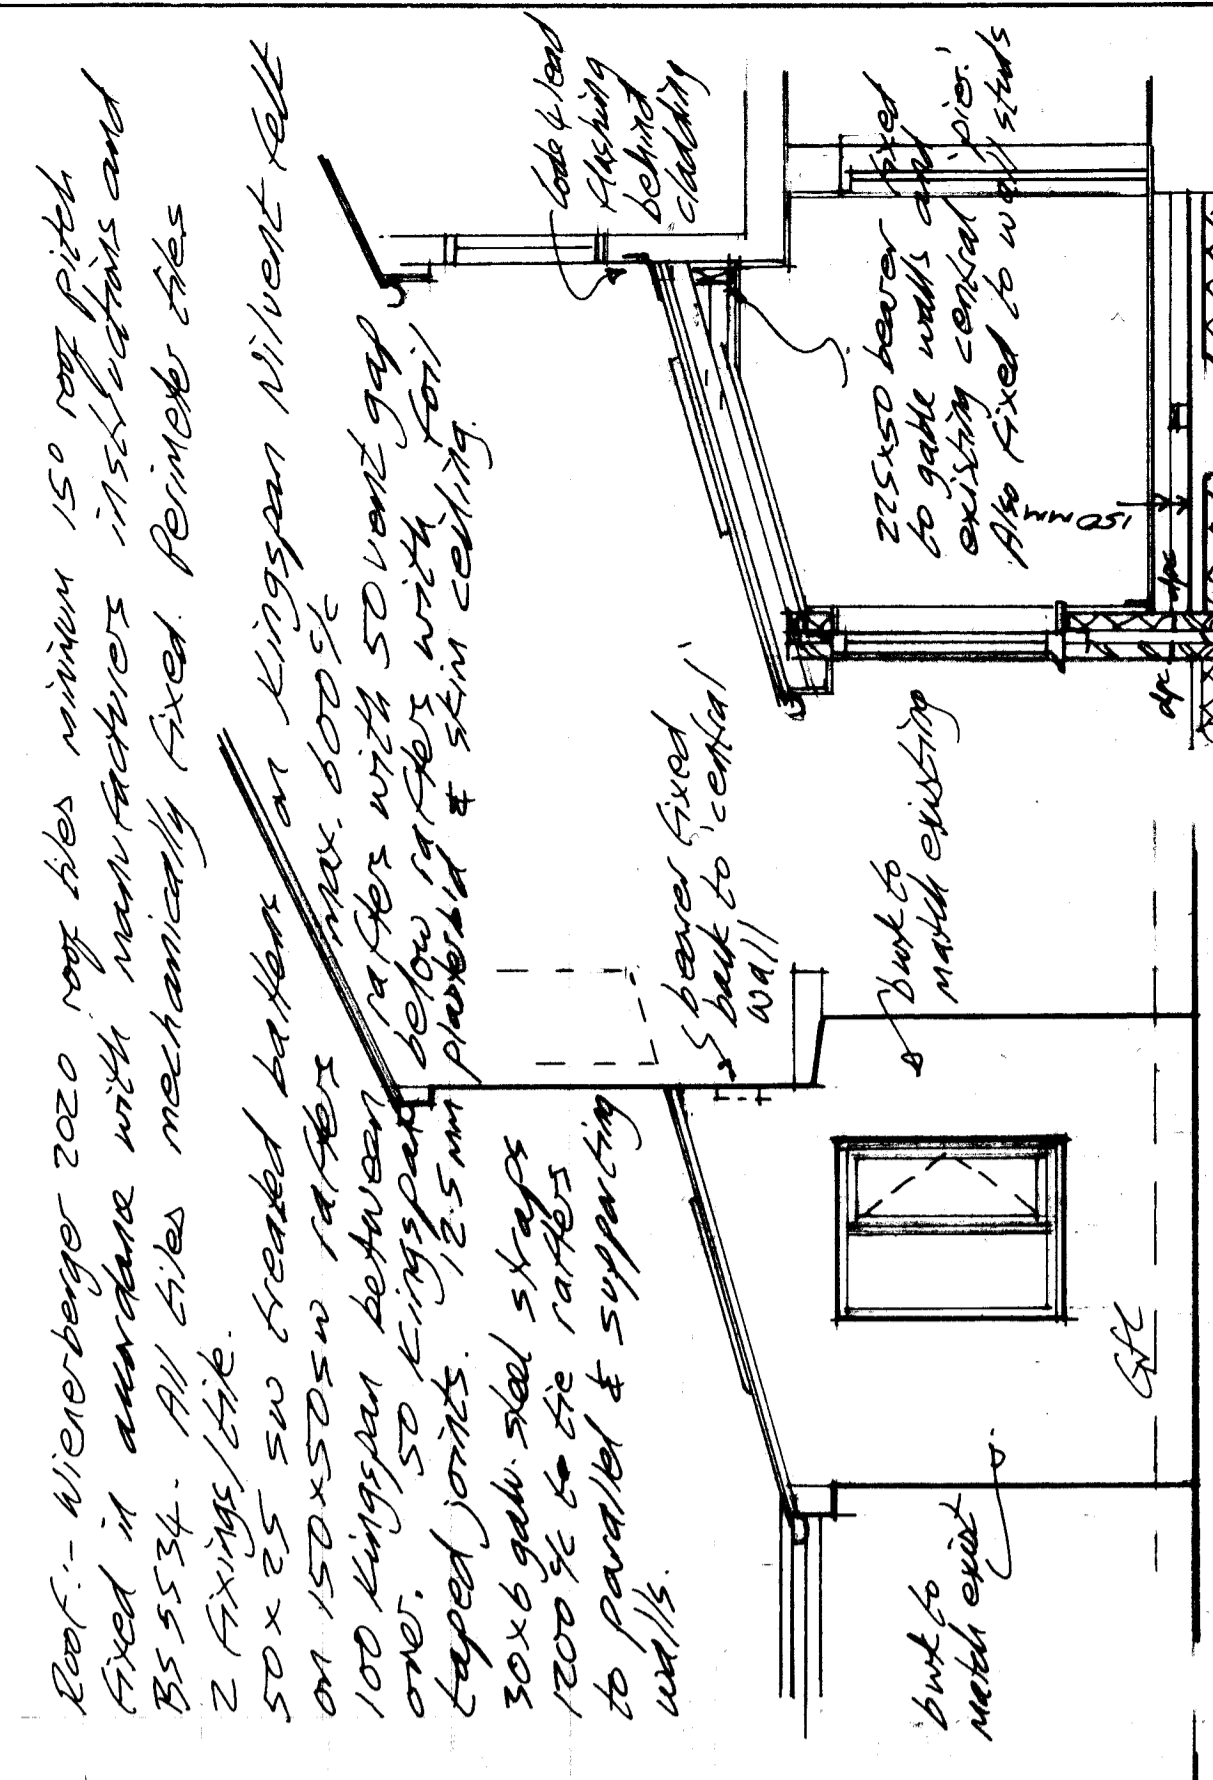 Roof:- Wienerberger 2020 roof tiles minimum 15° roof pitch
fixed in accordance with manufacturers instructions and
BS 5534. All tiles mechanically fixed. Perimeter tiles
2 fixings/tile.
50 x 25 sw treated battens on Kingspan Nilvent felt
on 150x50sw rafters max. 600 %
100 Kingspan between rafters with 50 vent gap
over. 50 Kingspan below rafters with foil
taped joints. 12.5mm plasterb'd & skim ceiling.
30x6 galv. steel straps
1200 % to tie rafters
to parallel & supporting
walls.
Code 4 lead
flashing
behind
cladding
225x50 bearer fixed
to gable walls and
existing central 'pier'.
Also fixed to wall studs
150mm
dpc
dpc
bearer fixed
back to 'central'
wall
bwk to
match existing
Gfl
bwk to
match exist